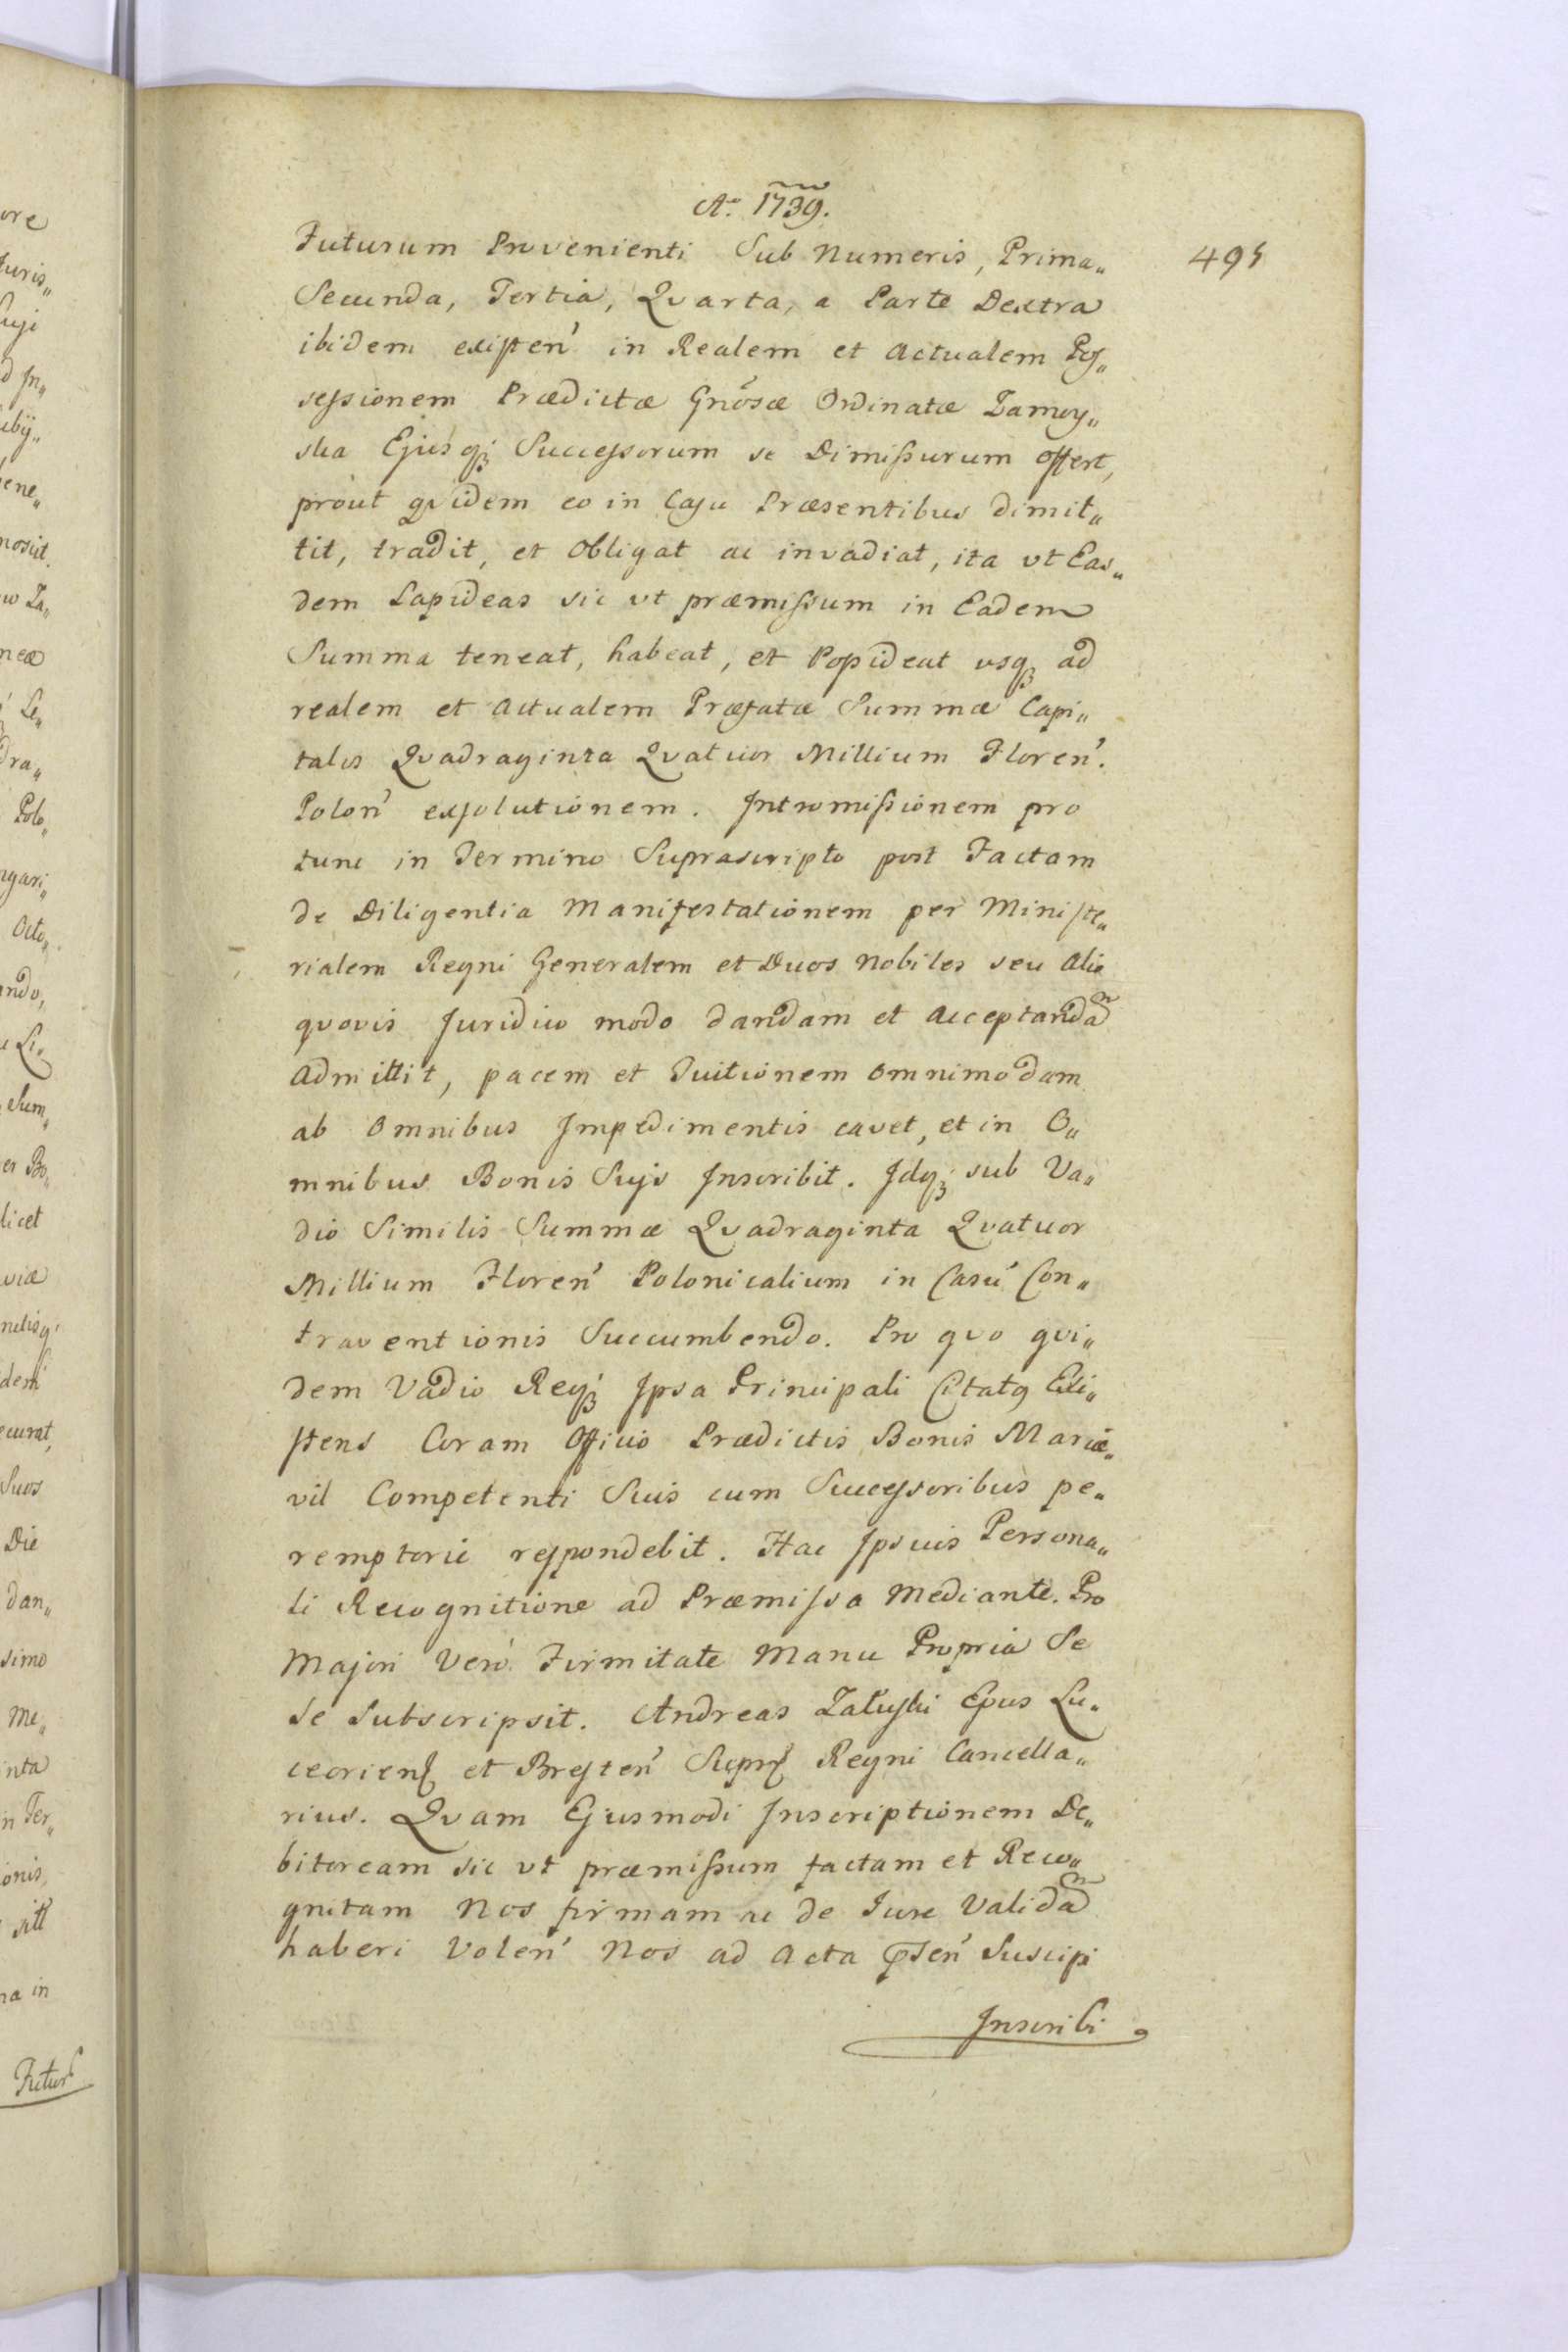 Ao. 1739.
495
Futurum Provenienti Sub Numeris, Prima„
Secunda, Tertia, Qvarta, a Parte Dextra
ibidem existen' in Realem et Actualem Pos„
sessionem Prædictæ Gnōsæ Ordinatæ Zamoy„
ska Ejusq; Successorum se Dimissurum offert,
prout qvidem eo in Casu Præsentibus dimit„
tit, tradit, et Obligat ac invadiat, ita vt Eas„
dem Lapideas sic vt præmissum in Eadem
Summa teneat, habeat, et Possideat usq; ad
realem et Actualem Præfatæ Summæ Capi„
talis Qvadraginta Qvatuor Millium Floren'.
Polon' exsolutionem. Intromissionem pro
tunc in Termino Suprascripto post Factam
de Diligentia Manifestationem per Ministe„
rialem Regni Generalem et Duos Nobiles seu Alio
qvovis Juridico modo dandam et Acceptandam
Admittit, pacem et Tuitionem omnimodam
ab Omnibus Impedimentis cavet, et in O„
mnibus Bonis Sujs Inscribit. Idq; sub Va„
dio Similis Summæ Qvadraginta Qvatuor
Millium Floren' Polonicalium in Casu Con„
traventionis Succumbendo. Pro qvo qvi„
dem Vadio Req; Ipsa Principali Citatq Exi„
stens Coram Officio Prædictis Bonis Marie„
vil Competenti Suis cum Successoribus pe„
remptorie respondebit. Hac Ipsius Persona„
li Recognitione ad Præmissa Mediante. Pro
Majori Vero Firmitate Manu Propria Se
Se Subscripsit. Andreas Załuski Epus Lu„
ceorien' et Bresten' Supr' Regni Cancella„
rius. Qvam Ejusmodi Inscriptionem De„
bitoream sic vt præmissum factam et Reco„
gnitam Nos firmam ac de Iure Validam
haberi Volen' Nos ad Acta pŝen' Suscipi
Inscribi